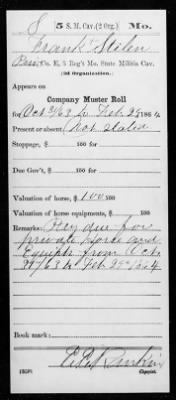 S 5 S. M. Cav. (2 Org.) Mo.
Frank Stilen
Co. E, 5 Reg't Mo. State Militia Cav.
(2d Organization.)
Appears on
Company Muster Roll
for Oct 31/63 to Feb 29, 1864
Present or absent Not stated
Stoppage, $ 100 for
Due Gov't, $ 100 for
Valuation of horse, $ 100
Valuation of horse equipments, $ 100
Remarks: Pay due for
private horse and
Equipts from Oct.
31/63 to Feb 29" 1864
Book mark:
Rankin
(358) Copyist.